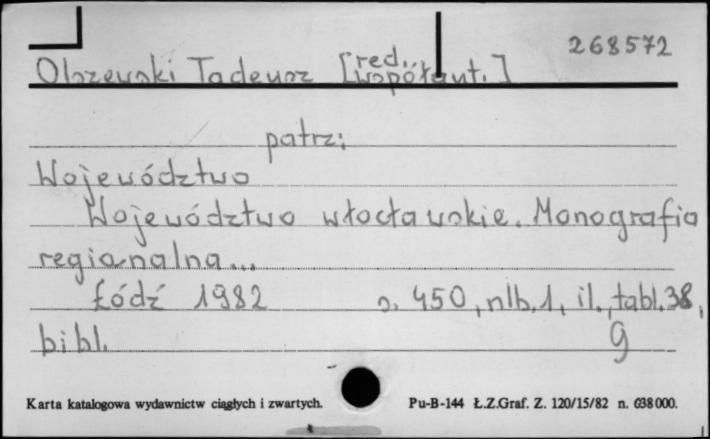 268572
Olszewski Tadeusz [red., współaut.]
patrz:
Województwo
Województwo włocławskie. Monografia
regionalna...
Łódź 1982 s. 450, nlb. 1, il., tabl. 38,
bibl. g
Karta katalogowa wydawnictw ciągłych i zwartych. Pu-B-144 Ł.Z.Graf. Z. 120/15/82 n. 638000.